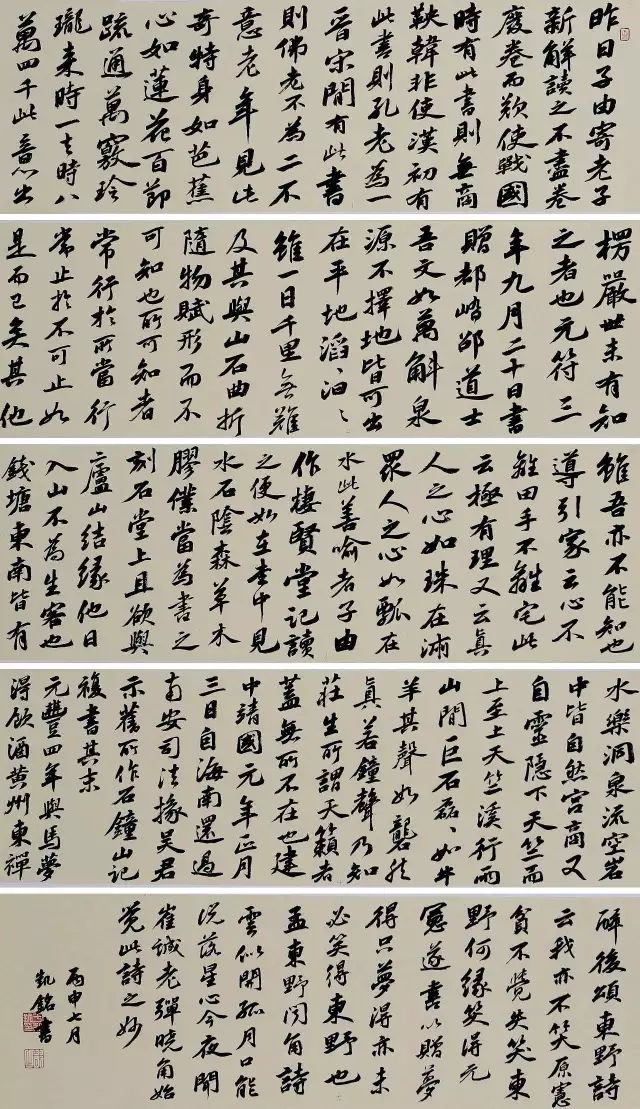 昨日子由寄老子
新解讀之不盡卷
廢卷而歎使戰國
時有此書則無商
鞅韓非使漢初有
此書則孔老為一
晉宋間有此書
則佛老不為二不
意老年見此
奇特身如芭蕉
心如蓮花百節
疏通萬竅玲
瓏來時一去時八
萬四千此意出
楞嚴世未有知
之者也元符三
年九月二十日書
贈都嶠邵道士
吾文如萬斛泉
源不擇地皆可出
在平地滔、汩、
雖一日千里無難
及其與山石曲折
隨物賦形而不
可知也所可知者
常行於所當行
常止於不可止如
是而已矣其他
雖吾亦不能知也
導引家云心不
離田手不離宅此
云極有理又云真
人之心如珠在淵
眾人之心如瓢在
水此善喻者子由
作棲賢堂記讀
之便如在堂中見
水石陰森草木
膠僕當為書之
刻石堂上且欲與
廬山結緣他日
入山不為生客也
錢塘東南皆有
水樂洞泉流空岩
中皆自然宮商又
自靈隱下天竺而
上至上天竺溪行兩
山間巨石磊、如牛
羊其聲如礱然
真若鐘聲乃知
莊生所謂天籟者
蓋無所不在也建
中靖國元年正月
三日自海南還過
南安司法掾吳君
示舊所作石鐘山記
複書其末
元豐四年與馬夢
得飲酒黃州東禪
醉後頌東野詩
云我亦不笑原憲
貧不覺失笑東
野何緣笑得元
憲遂書以贈夢
得只夢得亦未
必笑得東野也
孟東野聞角詩
雲似開孤月口能
說落星心今夜聞
崔誠老彈曉角始
覺此詩之妙
丙申七月
凱銘書